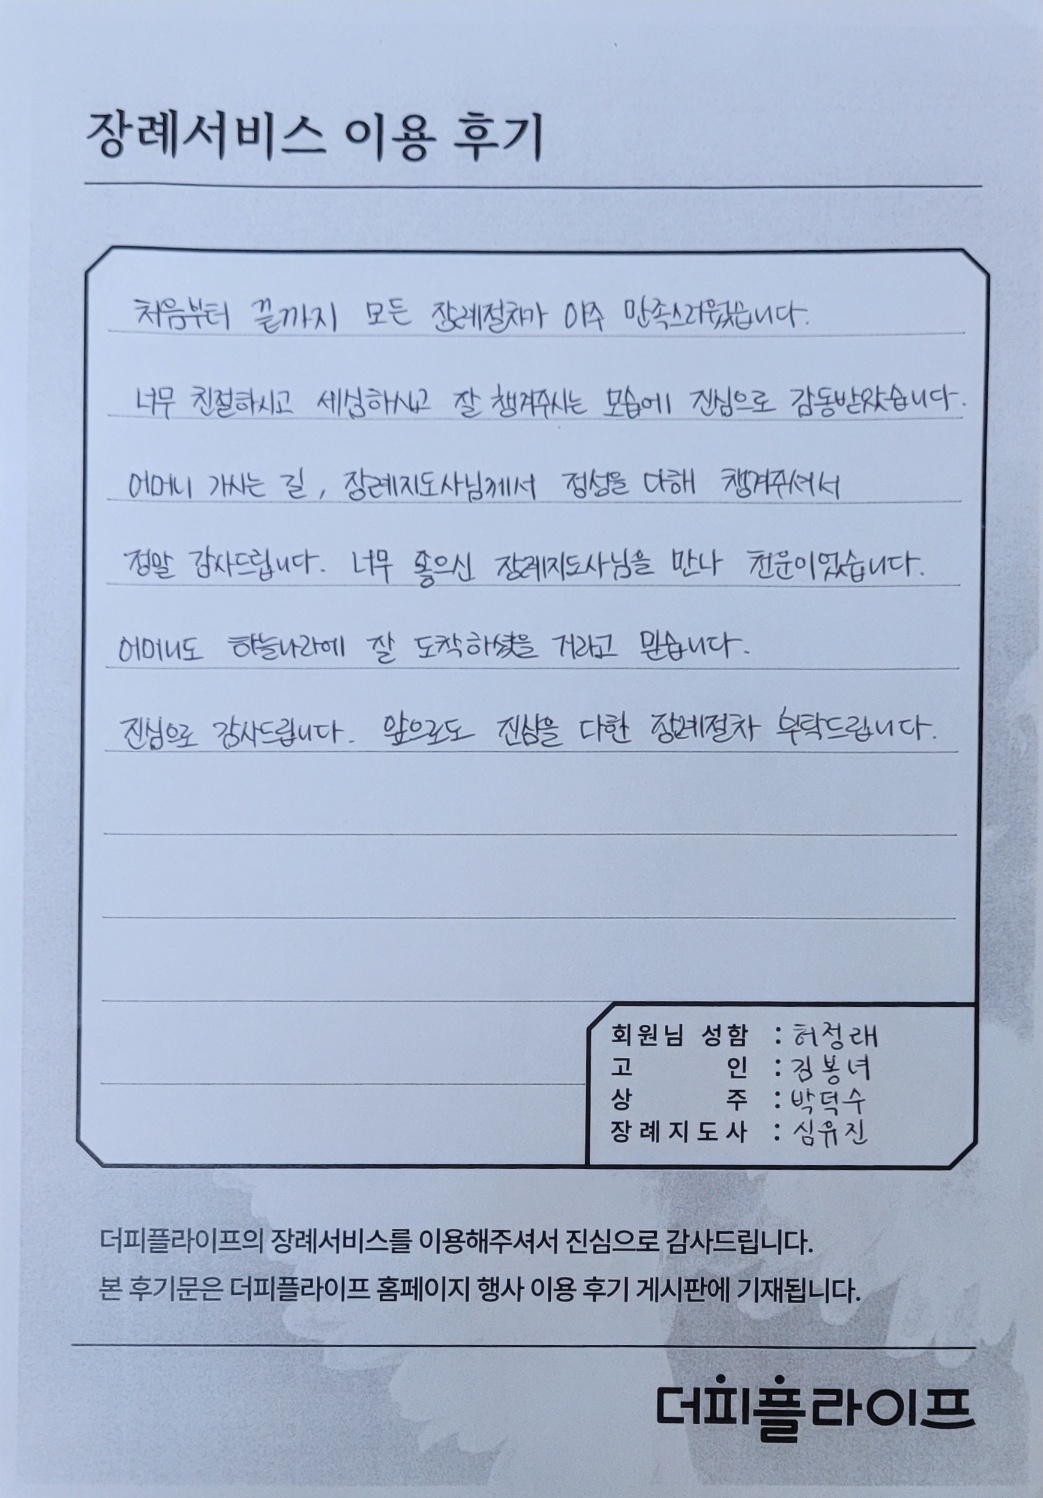 장례서비스 이용 후기
처음부터 끝까지 모든 장례절차가 아주 만족스러웠습니다.
너무 친절하시고 세심하시고 잘 챙겨주시는 모습에 진심으로 감동받았습니다.
어머니 가시는 길, 장례지도사님께서 정성을 다해 챙겨주셔서
정말 감사드립니다. 너무 좋으신 장례지도사님을 만나 천운이었습니다.
어머니도 하늘나라에 잘 도착하셨을 거라고 믿습니다.
진심으로 감사드립니다. 앞으로도 진심을 다한 장례절차 부탁드립니다.
회원님 성함 : 허정래
고 인 : 김봉녀
상 주 : 박덕수
장례지도사 : 심유진
더피플라이프의 장례서비스를 이용해주셔서 진심으로 감사드립니다.
본 후기문은 더피플라이프 홈페이지 행사 이용 후기 게시판에 기재됩니다.
더피플라이프